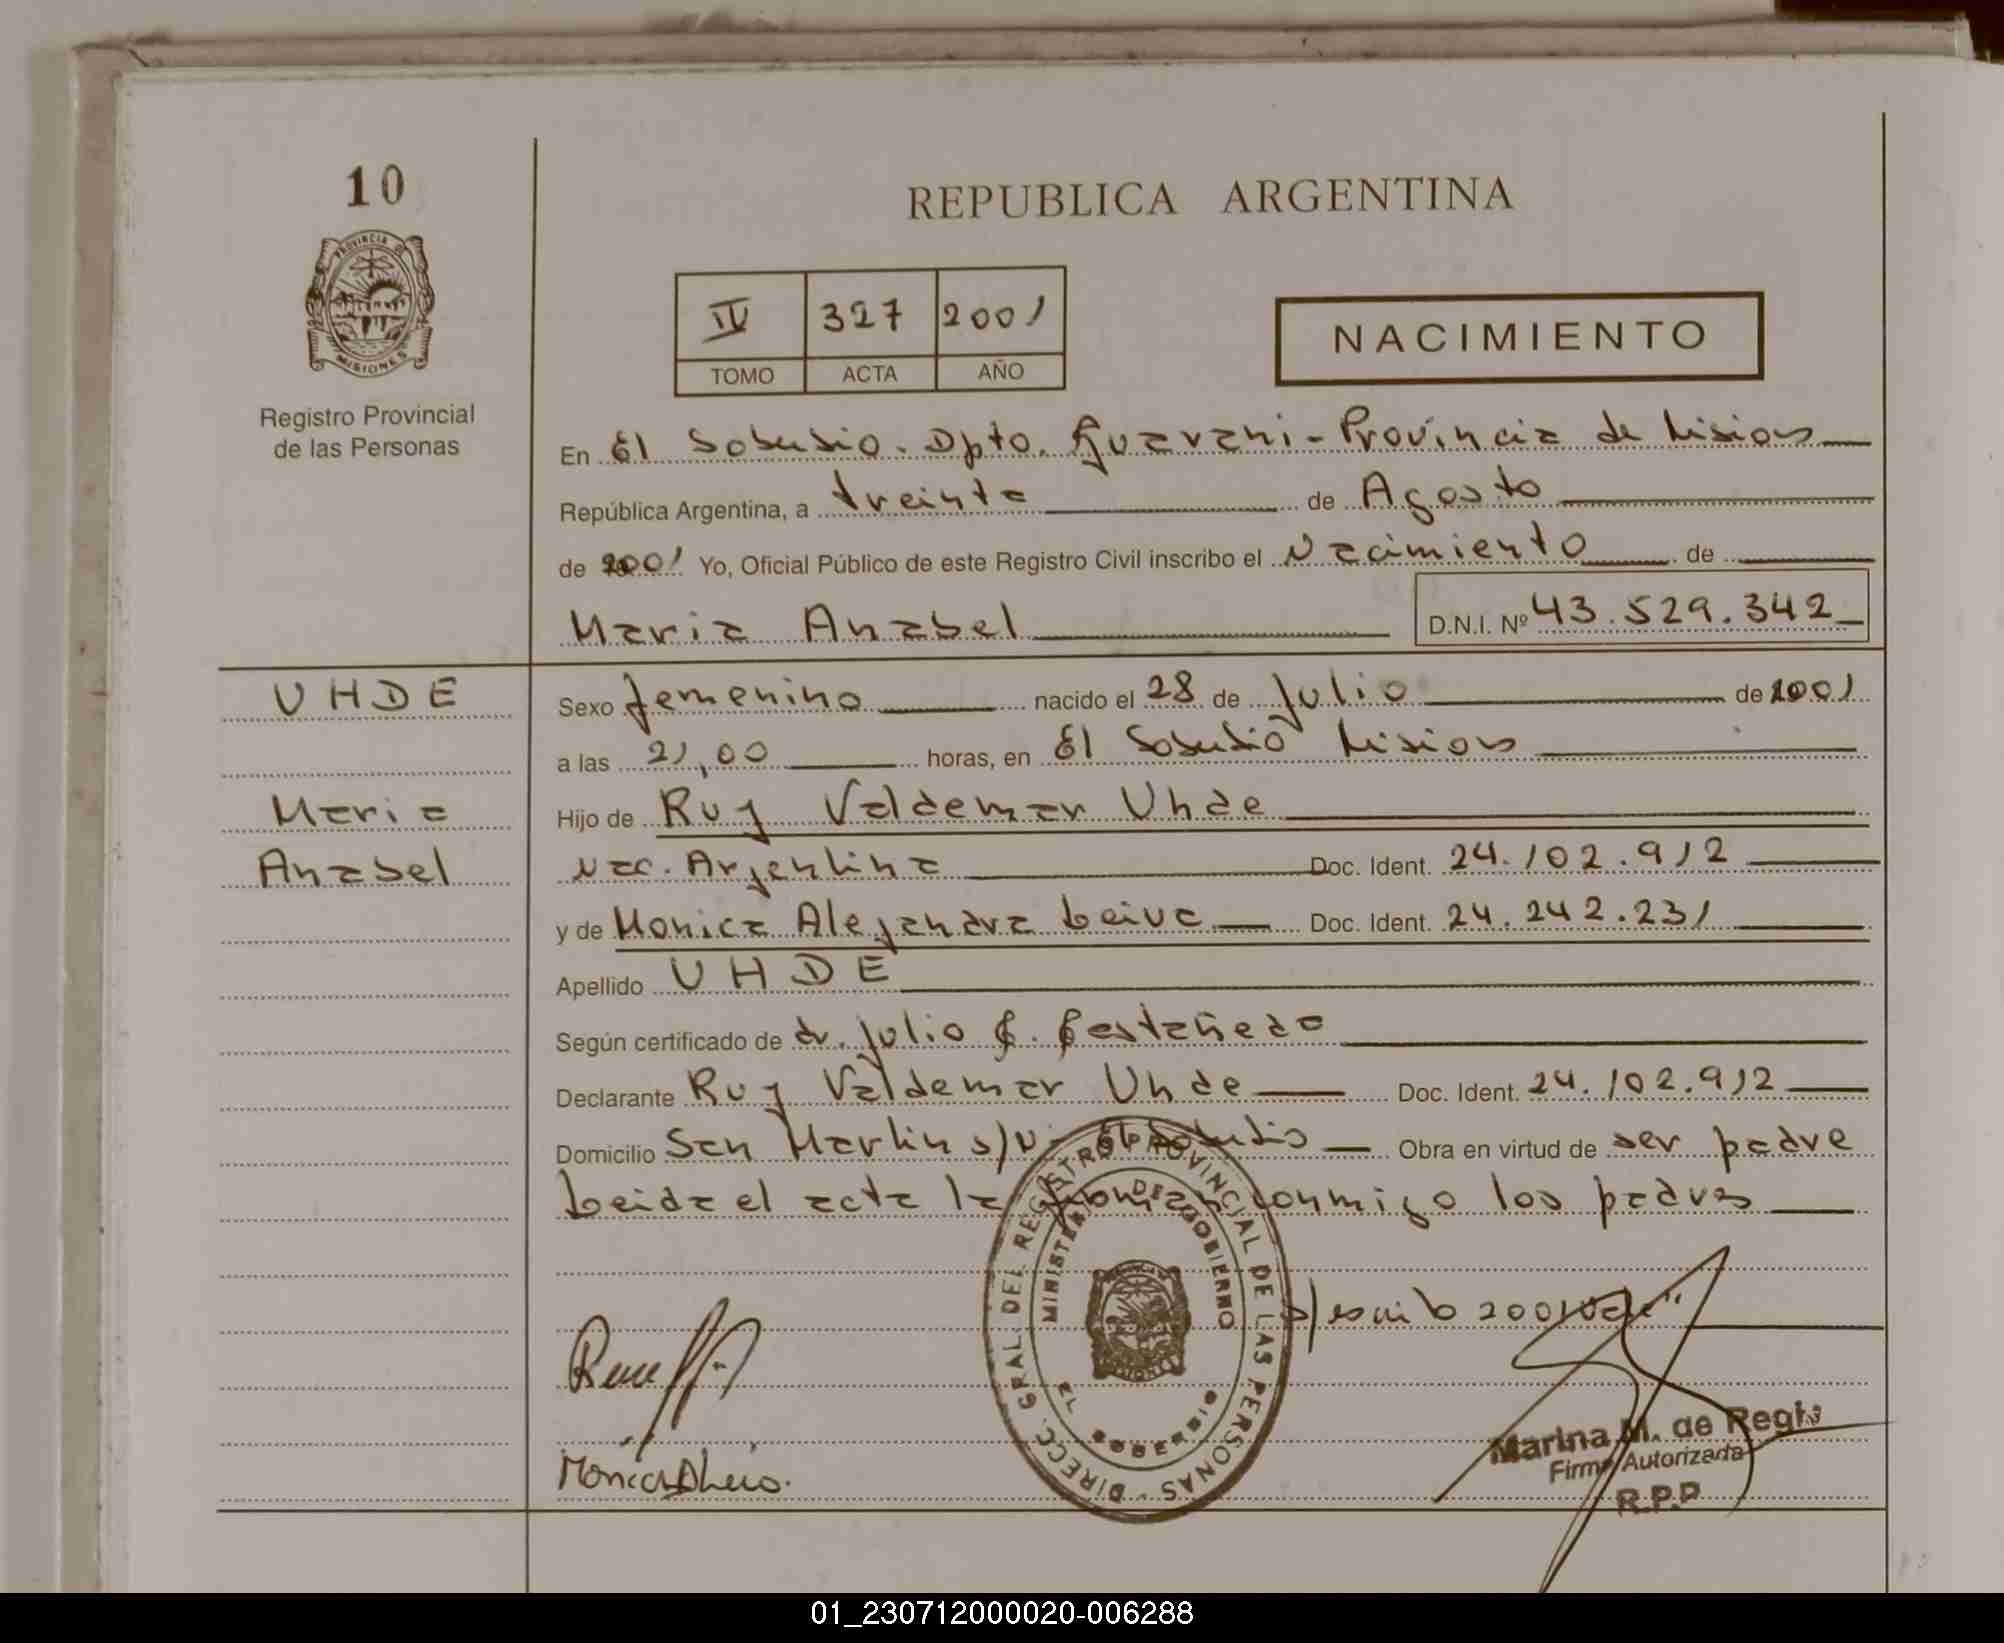 10
REPUBLICA ARGENTINA
PROVINCIA DE
MISIONES
Registro Provincial
de las Personas
IV 327 2001
TOMO ACTA AÑO
NACIMIENTO
En El Soberbio. Dpto. Guarani - Provincia de Misiones
República Argentina, a treinta de Agosto
de 2001 Yo, Oficial Público de este Registro Civil inscribo el Nacimiento de
Maria Anabel D.N.I. Nº 43.529.342
UHDE
Maria
Anabel
Sexo femenino nacido el 28 de Julio de 2001
a las 21,00 horas, en El Soberbio Misiones
Hijo de Ruy Valdemar Uhde
Nac. Argentina Doc. Ident. 24.102.912
y de Monica Alejandra Leiva Doc. Ident. 24.242.231
Apellido UHDE
Según certificado de dr. Julio C. Castañeda
Declarante Ruy Valdemar Uhde Doc. Ident. 24.102.912
Domicilio San Martin s/N- El Soberbio Obra en virtud de ser padre
Leida el acta la firman conmigo los padres
s/escrib 2001
DIRECC. GRAL. DEL REGISTRO PROVINCIAL DE LAS PERSONAS -
MINISTERIO DE GOBIERNO
EL SOBERBIO
Marina M. de Regis
Firma Autorizada
R.P.P
01_230712000020-006288